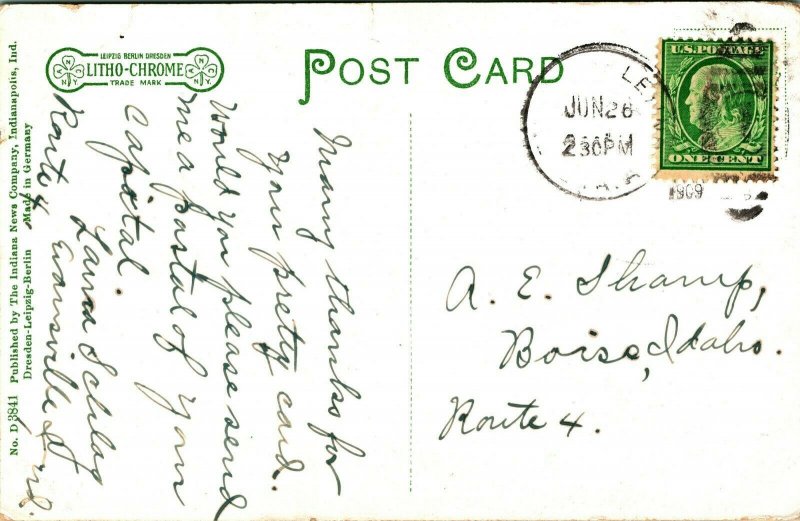 LEIPZIG BERLIN DRESDEN
LITHO-CHROME
TRADE MARK
POST CARD
JUN 26
2 30 PM
1909
U.S. POSTAGE
ONE CENT
Many thanks for
your pretty card.
Would you please send
me a postal of your
Capital.
Laura
Route 4. Evansville Ind.
A. E. Shamp,
Boise, Idaho.
Route 4.
No. D 3841 Published by The Indiana News Company, Indianapolis, Ind.
Dresden-Leipzig-Berlin Made in Germany